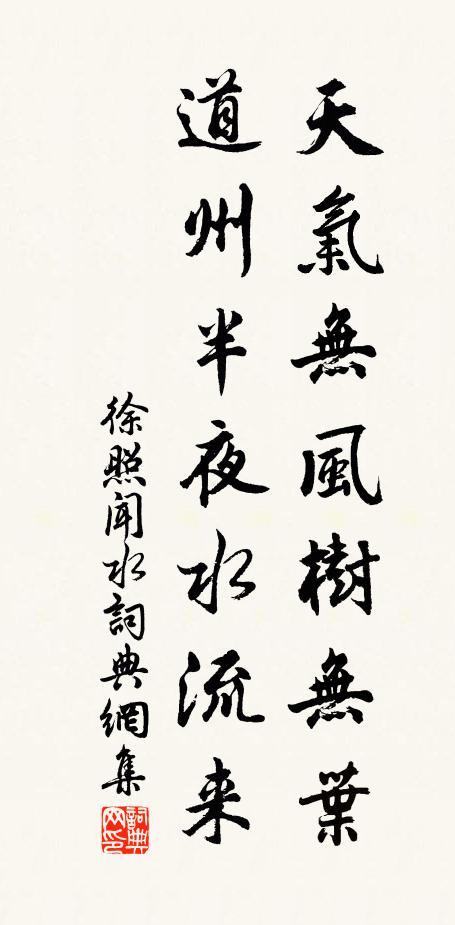 天氣無風樹無葉
道州半夜水流来
徐照闻水詞典網集
詞典网印